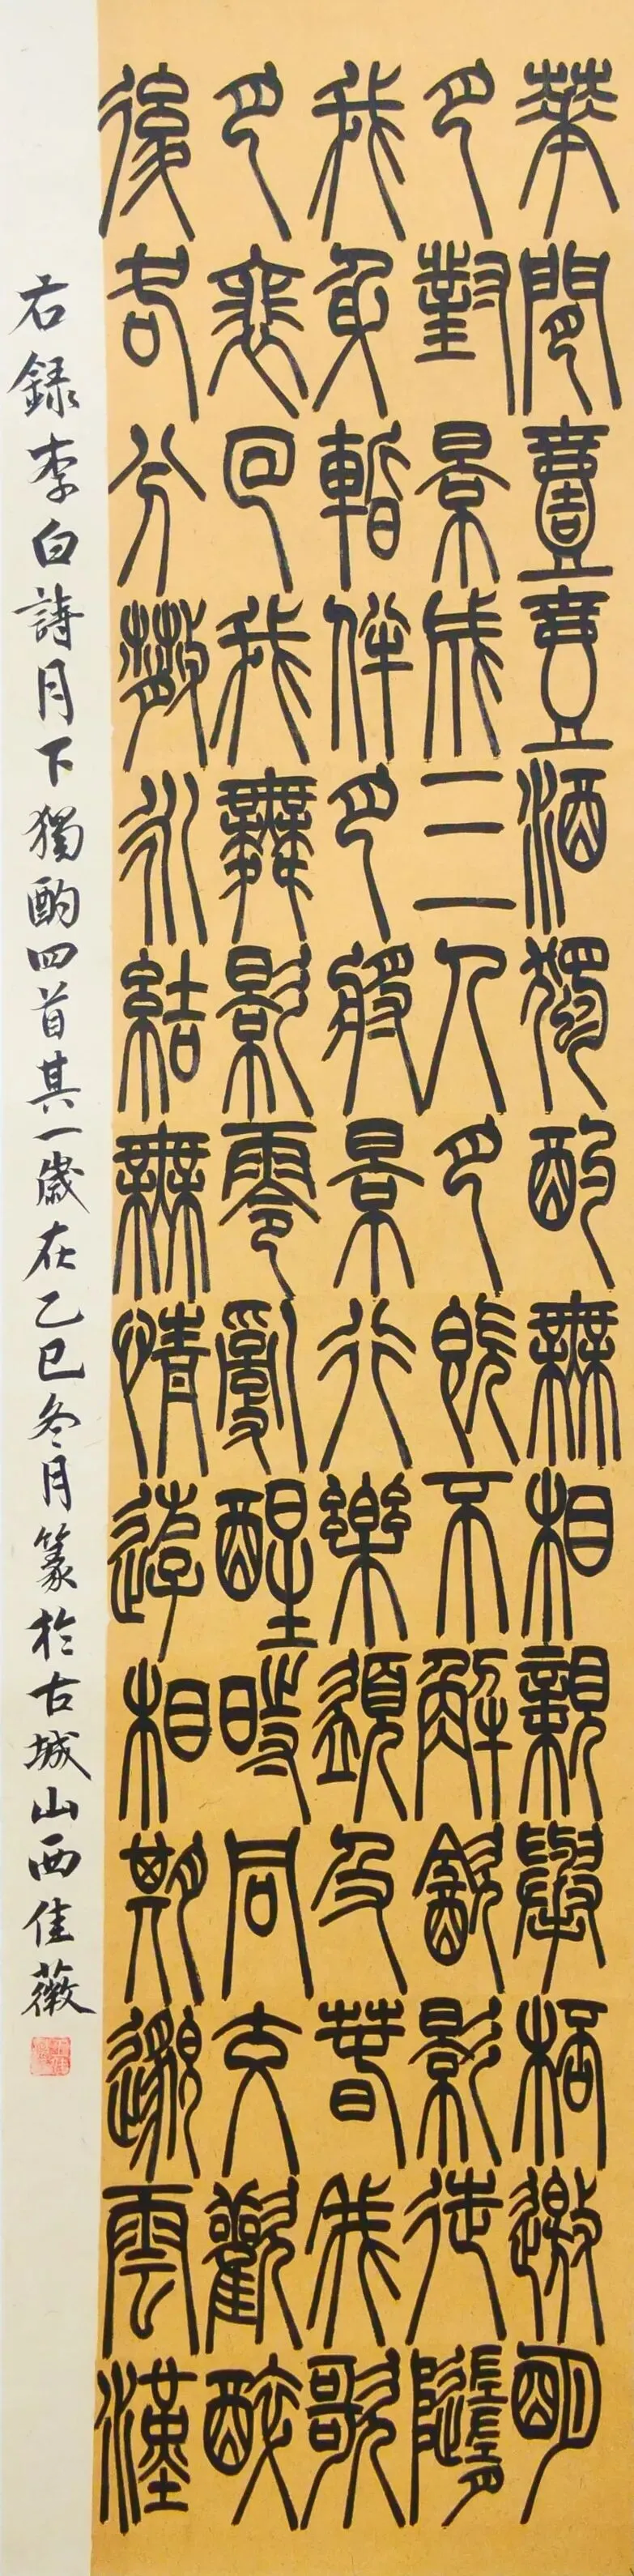 華閒壹壺酒獨酌無相親舉桮邀明
月對景成三人月既不解飲影徒隨
我身暫伴月將景行樂須及春我歌
月裴回我舞影零亂醒時同交歡醉
後各分散永結無情遊相期邈雲漢
右録李白詩月下獨酌四首其一歲在乙巳冬月篆於古城山西佳薇